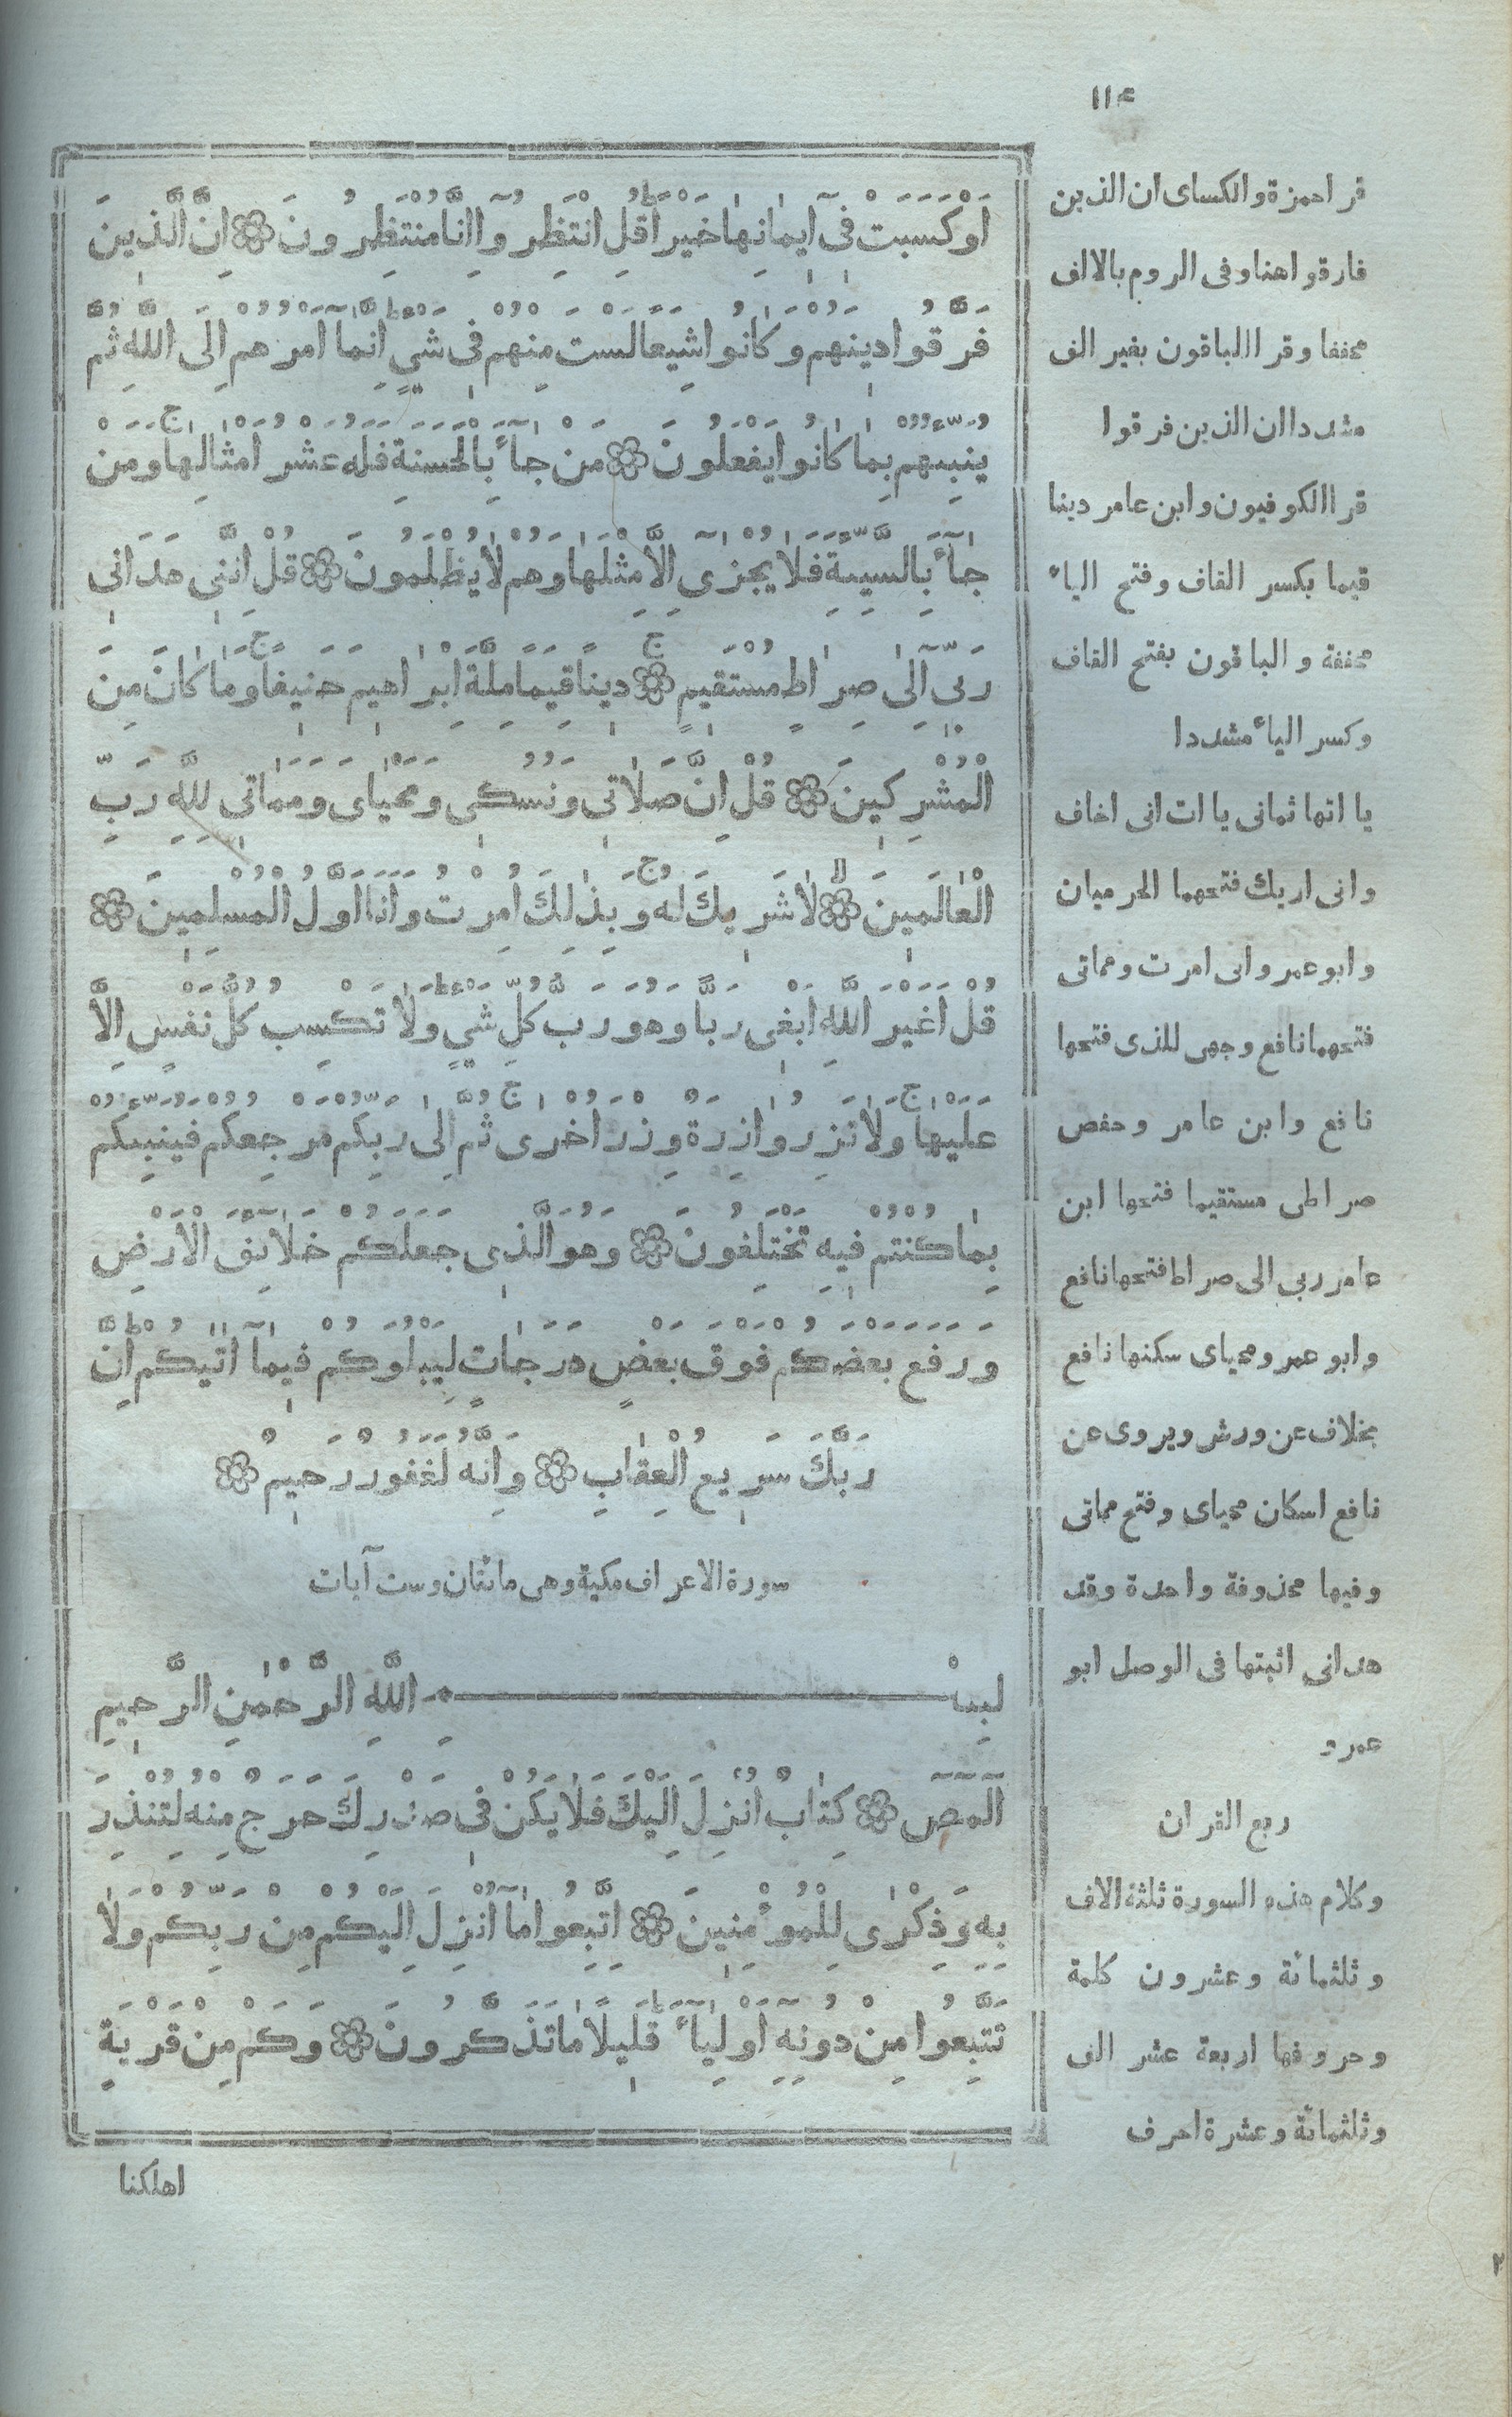 ١١٤
اَوْ كَسَبَتْ فِىٓ اٖيمٰانِهٰا خَيْرًاؕ قُلِ انْتَظِرُوٓا اِنّٰا مُنْتَظِرُونَ ۞ اِنَّ الَّذٖينَ
فَرَّقُوا دٖينَهُمْ وَكٰانُوا شِيَعًا لَسْتَ مِنْهُمْ فٖى شَىْءٍؕ اِنَّمٰآ اَمْرُهُمْ اِلَى اللّٰهِ ثُمَّ
يُنَبِّئُهُمْ بِمٰا كٰانُوا يَفْعَلُونَ ۞ مَنْ جٰآءَ بِالْحَسَنَةِ فَلَهُ عَشْرُ اَمْثٰالِهٰاۚ وَمَنْ
جٰآءَ بِالسَّيِّئَةِ فَلٰا يُجْزٰىٓ اِلَّا مِثْلَهٰا وَهُمْ لٰا يُظْلَمُونَ ۞ قُلْ اِنَّنٖى هَدَانٖى
رَبّٖىٓ اِلٰى صِرٰاطٍ مُسْتَقٖيمٍۚ ۞ دٖينًا قِيَمًا مِلَّةَ اِبْرٰاهٖيمَ حَنٖيفًاۚ وَمٰا كٰانَ مِنَ
الْمُشْرِكٖينَ ۞ قُلْ اِنَّ صَلٰاتٖى وَنُسُكٖى وَمَحْيٰاىَ وَمَمٰاتٖى لِلّٰهِ رَبِّ
الْعٰالَمٖينَ ۞ۙ لٰا شَرٖيكَ لَهُۚ وَبِذٰلِكَ اُمِرْتُ وَاَنَا اَوَّلُ الْمُسْلِمٖينَ ۞
قُلْ اَغَيْرَ اللّٰهِ اَبْغٖى رَبًّا وَهُوَ رَبُّ كُلِّ شَىْءٍؕ وَلٰا تَكْسِبُ كُلُّ نَفْسٍ اِلَّا
عَلَيْهٰاۚ وَلٰا تَزِرُ وٰازِرَةٌ وِزْرَ اُخْرٰىۚ ثُمَّ اِلٰى رَبِّكُمْ مَرْجِعُكُمْ فَيُنَبِّئُكُمْ
بِمٰا كُنْتُمْ فٖيهِ تَخْتَلِفُونَ ۞ وَهُوَ الَّذٖى جَعَلَكُمْ خَلٰآئِفَ الْاَرْضِ
وَرَفَعَ بَعْضَكُمْ فَوْقَ بَعْضٍ دَرَجٰاتٍ لِيَبْلُوَكُمْ فٖيمٰآ اٰتٰيكُمْؕ اِنَّ
رَبَّكَ سَرٖيعُ الْعِقٰابِ ۞ وَاِنَّهُ لَغَفُورٌ رَحٖيمٌ ۞
سورة الاعراف مكية وهى مائتان وست آيات
بِسْمِ اللّٰهِ الرَّحْمٰنِ الرَّحٖيمِ
آلٓمٓصٓ ۞ كِتٰابٌ اُنْزِلَ اِلَيْكَ فَلٰا يَكُنْ فٖى صَدْرِكَ حَرَجٌ مِنْهُ لِتُنْذِرَ
بِهِ وَذِكْرٰى لِلْمُؤْمِنٖينَ ۞ اِتَّبِعُوا مٰآ اُنْزِلَ اِلَيْكُمْ مِنْ رَبِّكُمْ وَلٰا
تَتَّبِعُوا مِنْ دُونِهِٓ اَوْلِيٰآءَؕ قَلٖيلًا مٰا تَذَكَّرُونَ ۞ وَكَمْ مِنْ قَرْيَةٍ
اهلكنا
قرا حمزة والكساى ان الذين
فارقوا هنا وفى الروم بالالف
مخففا وقرا الباقون بغير الف
مشددا ان الذين فرقوا
قرا الكوفيون وابن عامر دينا
قيما بكسر القاف وفتح الياء
مخففة والباقون بفتح القاف
وكسر الياء مشددا
يا اتها ثمانى يا ات انى اخاف
وانى اريك فتحهما الحرميان
وابو عمرو انى امرت ومماتى
فتحهما نافع وجهى للذى فتحها
نافع وابن عامر وحفص
صراطى مستقيما فتحها ابن
عامر ربى الى صراط فتحها نافع
وابو عمرو ومحياى سكنها نافع
بخلاف عن ورش ويروى عن
نافع اسكان محياى وفتح مماتى
وفيها محذوفة واحدة وقد
هدانى اثبتها فى الوصل ابو
عمرو
ربع القران
وكلام هذه السورة ثلثة الاف
وثلثمائة وعشرون كلمة
وحروفها اربعة عشر الف
وثلثمائة وعشرة احرف
٢